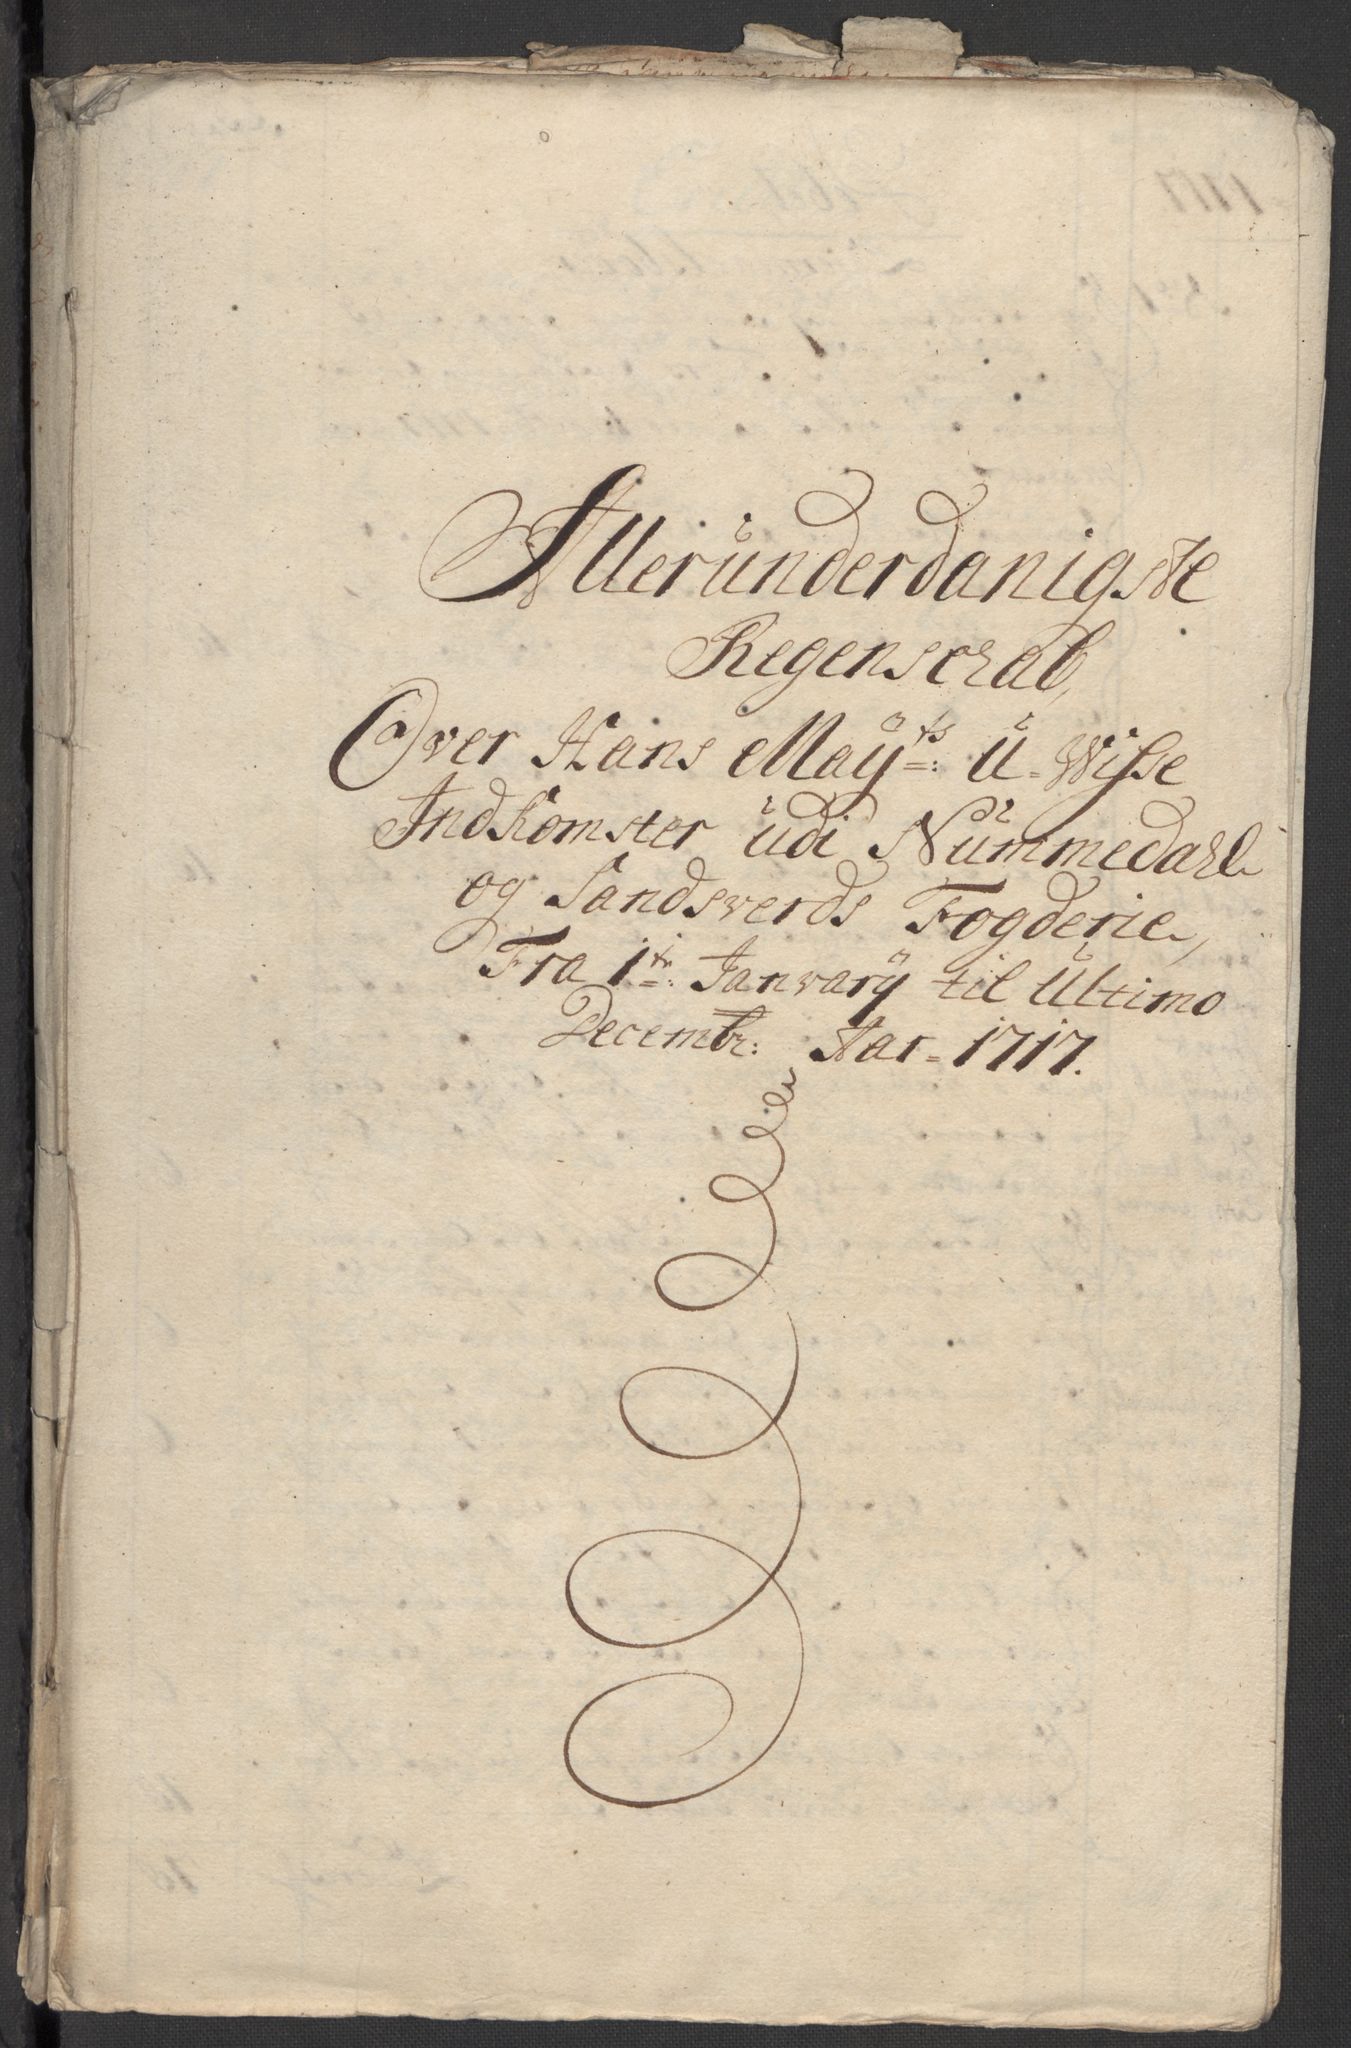 Alleründerdanigste
Regenschab,
Over Hans Maÿ<sup>ts</sup>: ü-Wisse
Indkomster üdi Nümmedahl
og Sandsverds Fogderie,
Fra 1<sup>te</sup>: Janvarÿ til Ültimo
Decembr: Aar-1717.